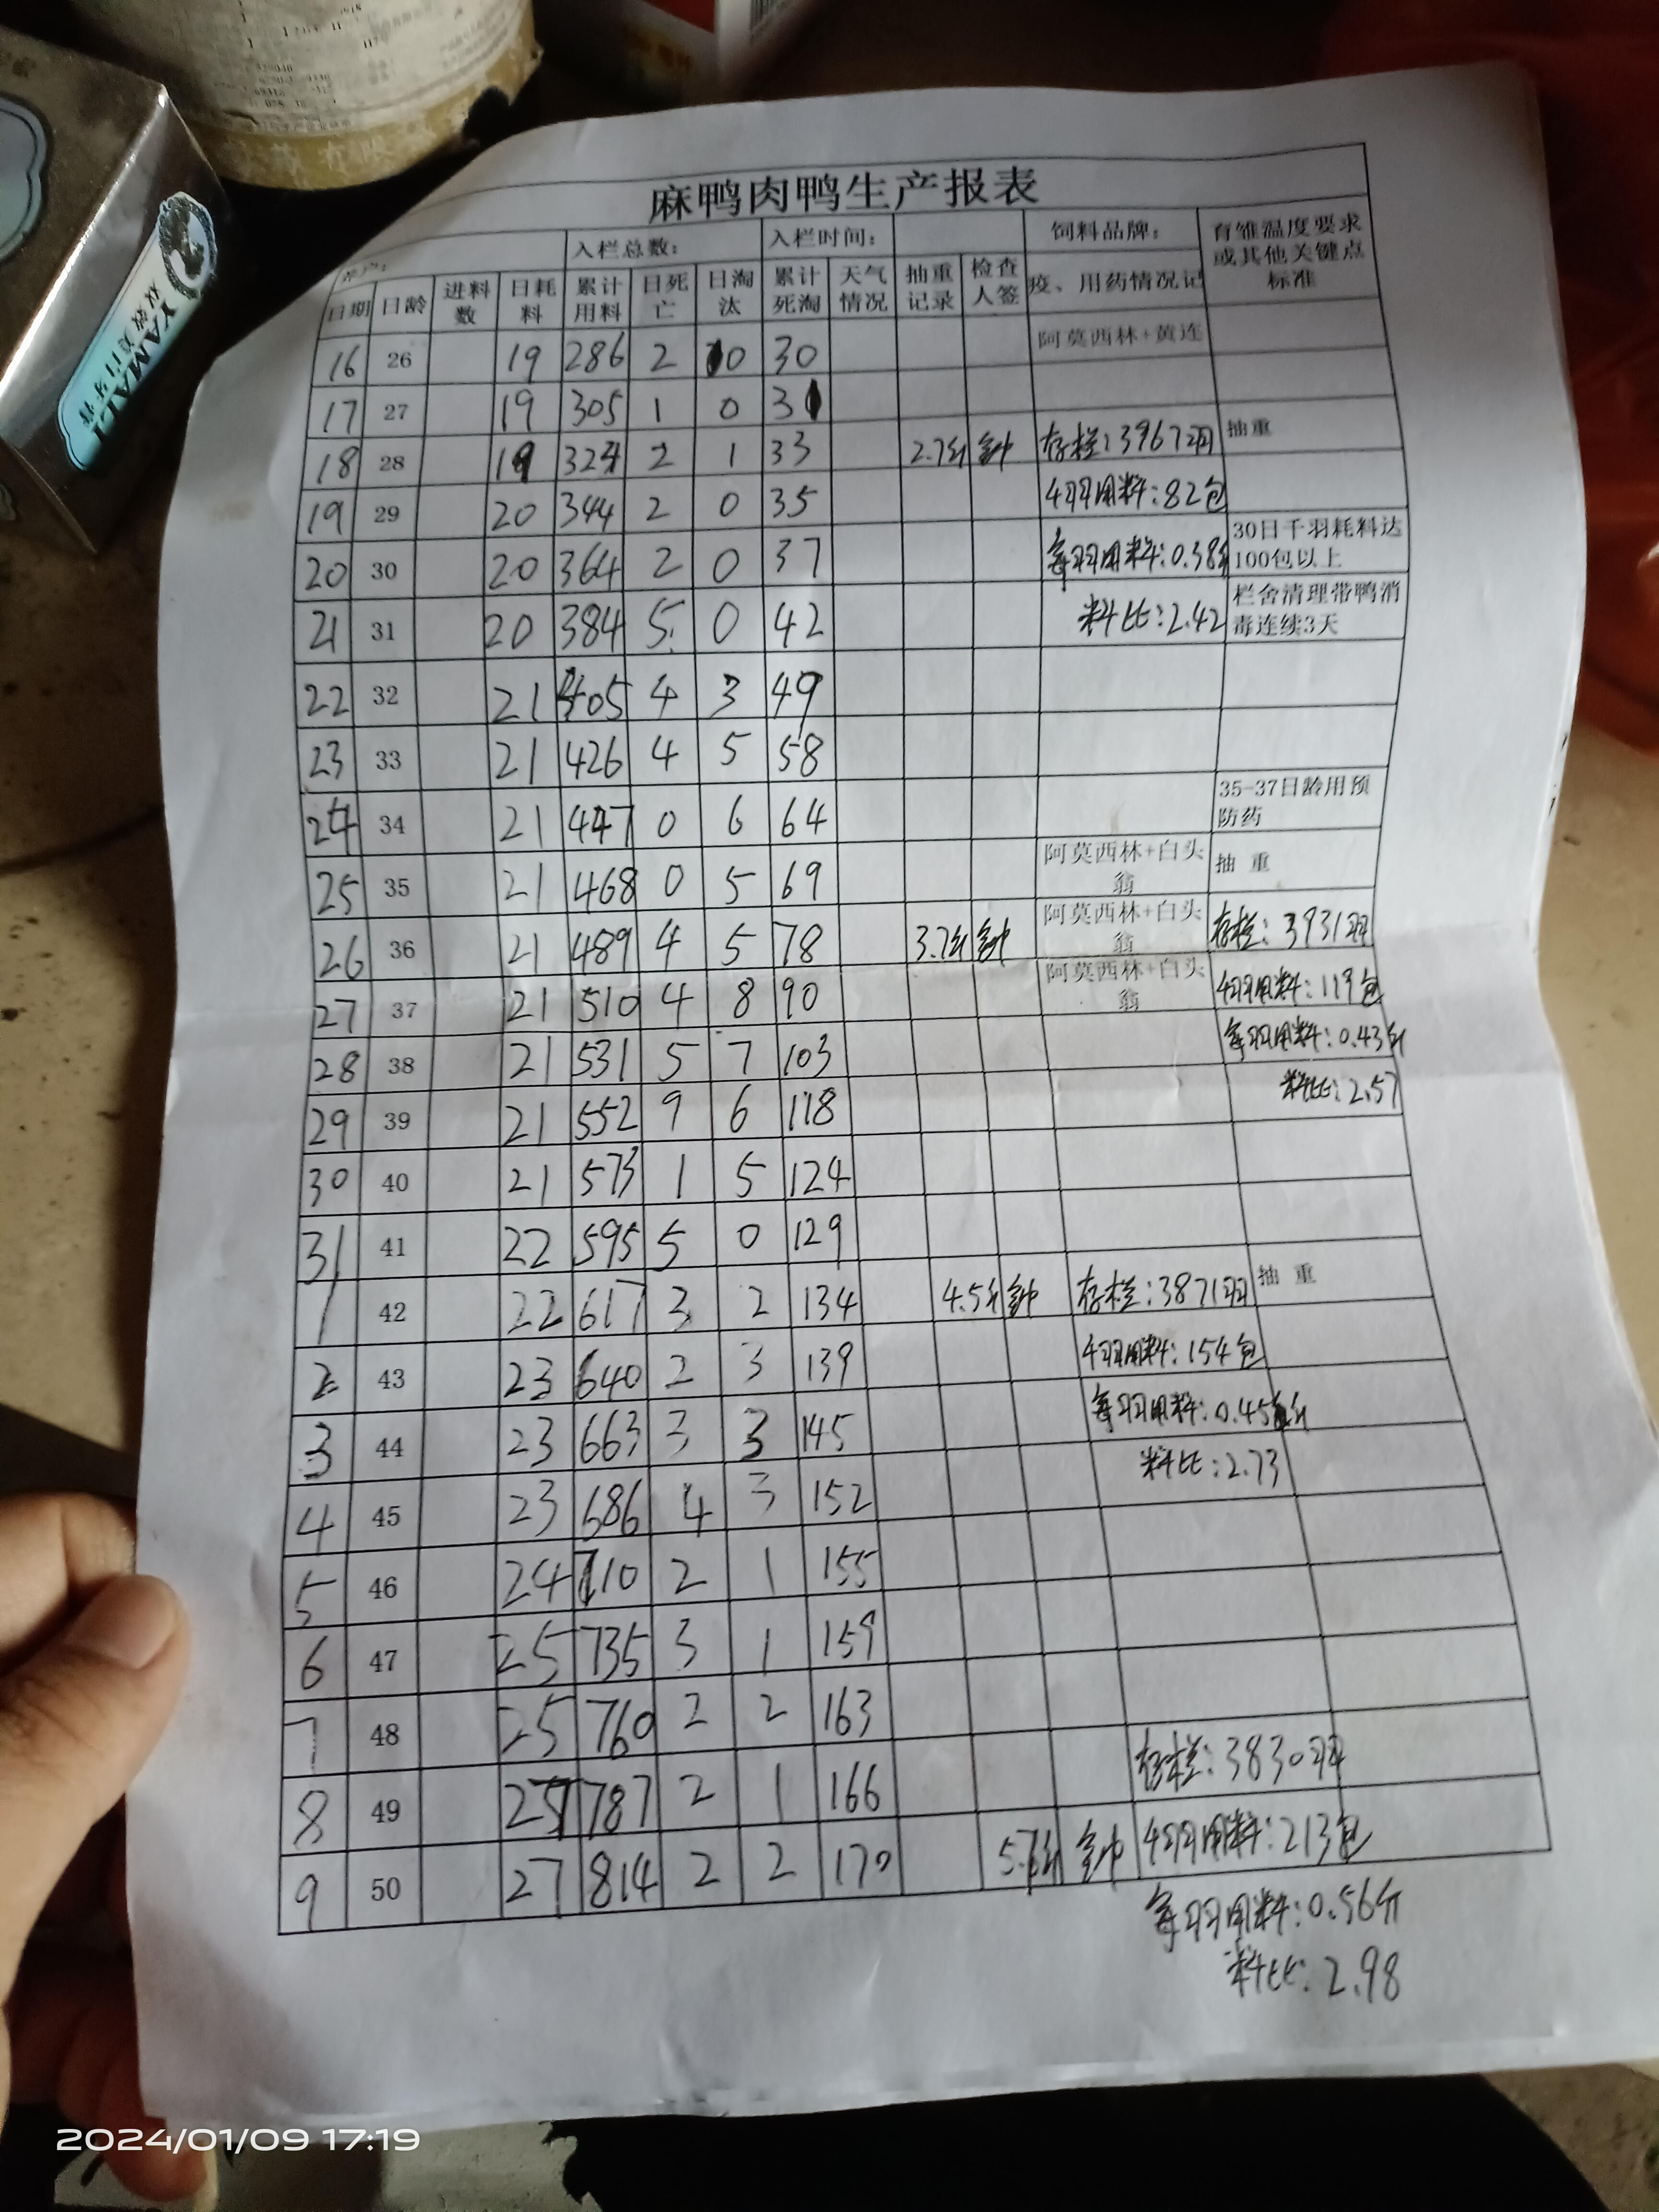 麻鸭肉鸭生产报表
入栏总数: 入栏时间: 饲料品牌: 育雏温度要求或其他关键点标准
日期 日龄 进料数 日耗料 累计用料 日死亡 日淘汰 累计死淘 天气情况 抽重记录 检查人签 疫、用药情况记
16 26 19 286 2 0 30 阿莫西林+黄连
17 27 19 305 1 0 31
18 28 19 324 2 1 33 2.7斤 存栏:3967羽 抽重
19 29 20 344 2 0 35 4羽用料:82包
20 30 20 364 2 0 37 每羽用料:0.38斤 30日千羽耗料达100包以上
21 31 20 384 5 0 42 料比:2.42 栏舍清理带鸭消毒连续3天
22 32 21 405 4 3 49
23 33 21 426 4 5 58
24 34 21 447 0 6 64 35-37日龄用预防药
25 35 21 468 0 5 69 阿莫西林+白头翁 抽 重
26 36 21 489 4 5 78 3.7斤 阿莫西林+白头翁 存栏:3931羽
27 37 21 510 4 8 90 阿莫西林+白头翁 4羽用料:119包
28 38 21 531 5 7 103 每羽用料:0.43斤
29 39 21 552 9 6 118 料比:2.57
30 40 21 573 1 5 124
31 41 22 595 5 0 129
1 42 22 617 3 2 134 4.5斤 存栏:3871羽 抽 重
2 43 23 640 2 3 139 4羽用料:154包
3 44 23 663 3 3 145 每羽用料:0.45斤
4 45 23 686 4 3 152 料比:2.73
5 46 24 710 2 1 155
6 47 25 735 3 1 159
7 48 25 760 2 2 163
8 49 27 787 2 1 166 存栏:3830羽
9 50 27 814 2 2 170 5.7斤 4羽用料:213包
每羽用料:0.56斤
料比:2.98
YAMALI
双效美白牙膏
2024/01/09 17:19